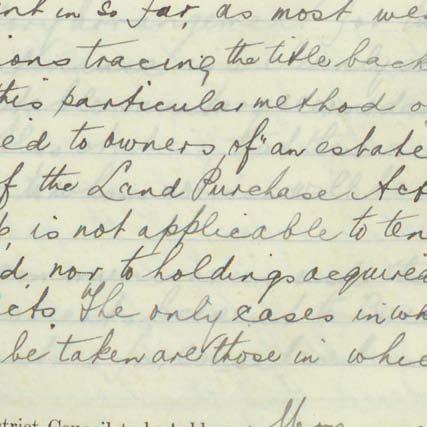 in so far, as most we
ions tracing the title back
this particular method o
ed to owners of "an estate
f the Land Purchase Act
is not applicable to ten
d, nor to holdings acquired
cts. The only cases in wh
be taken are those in whic